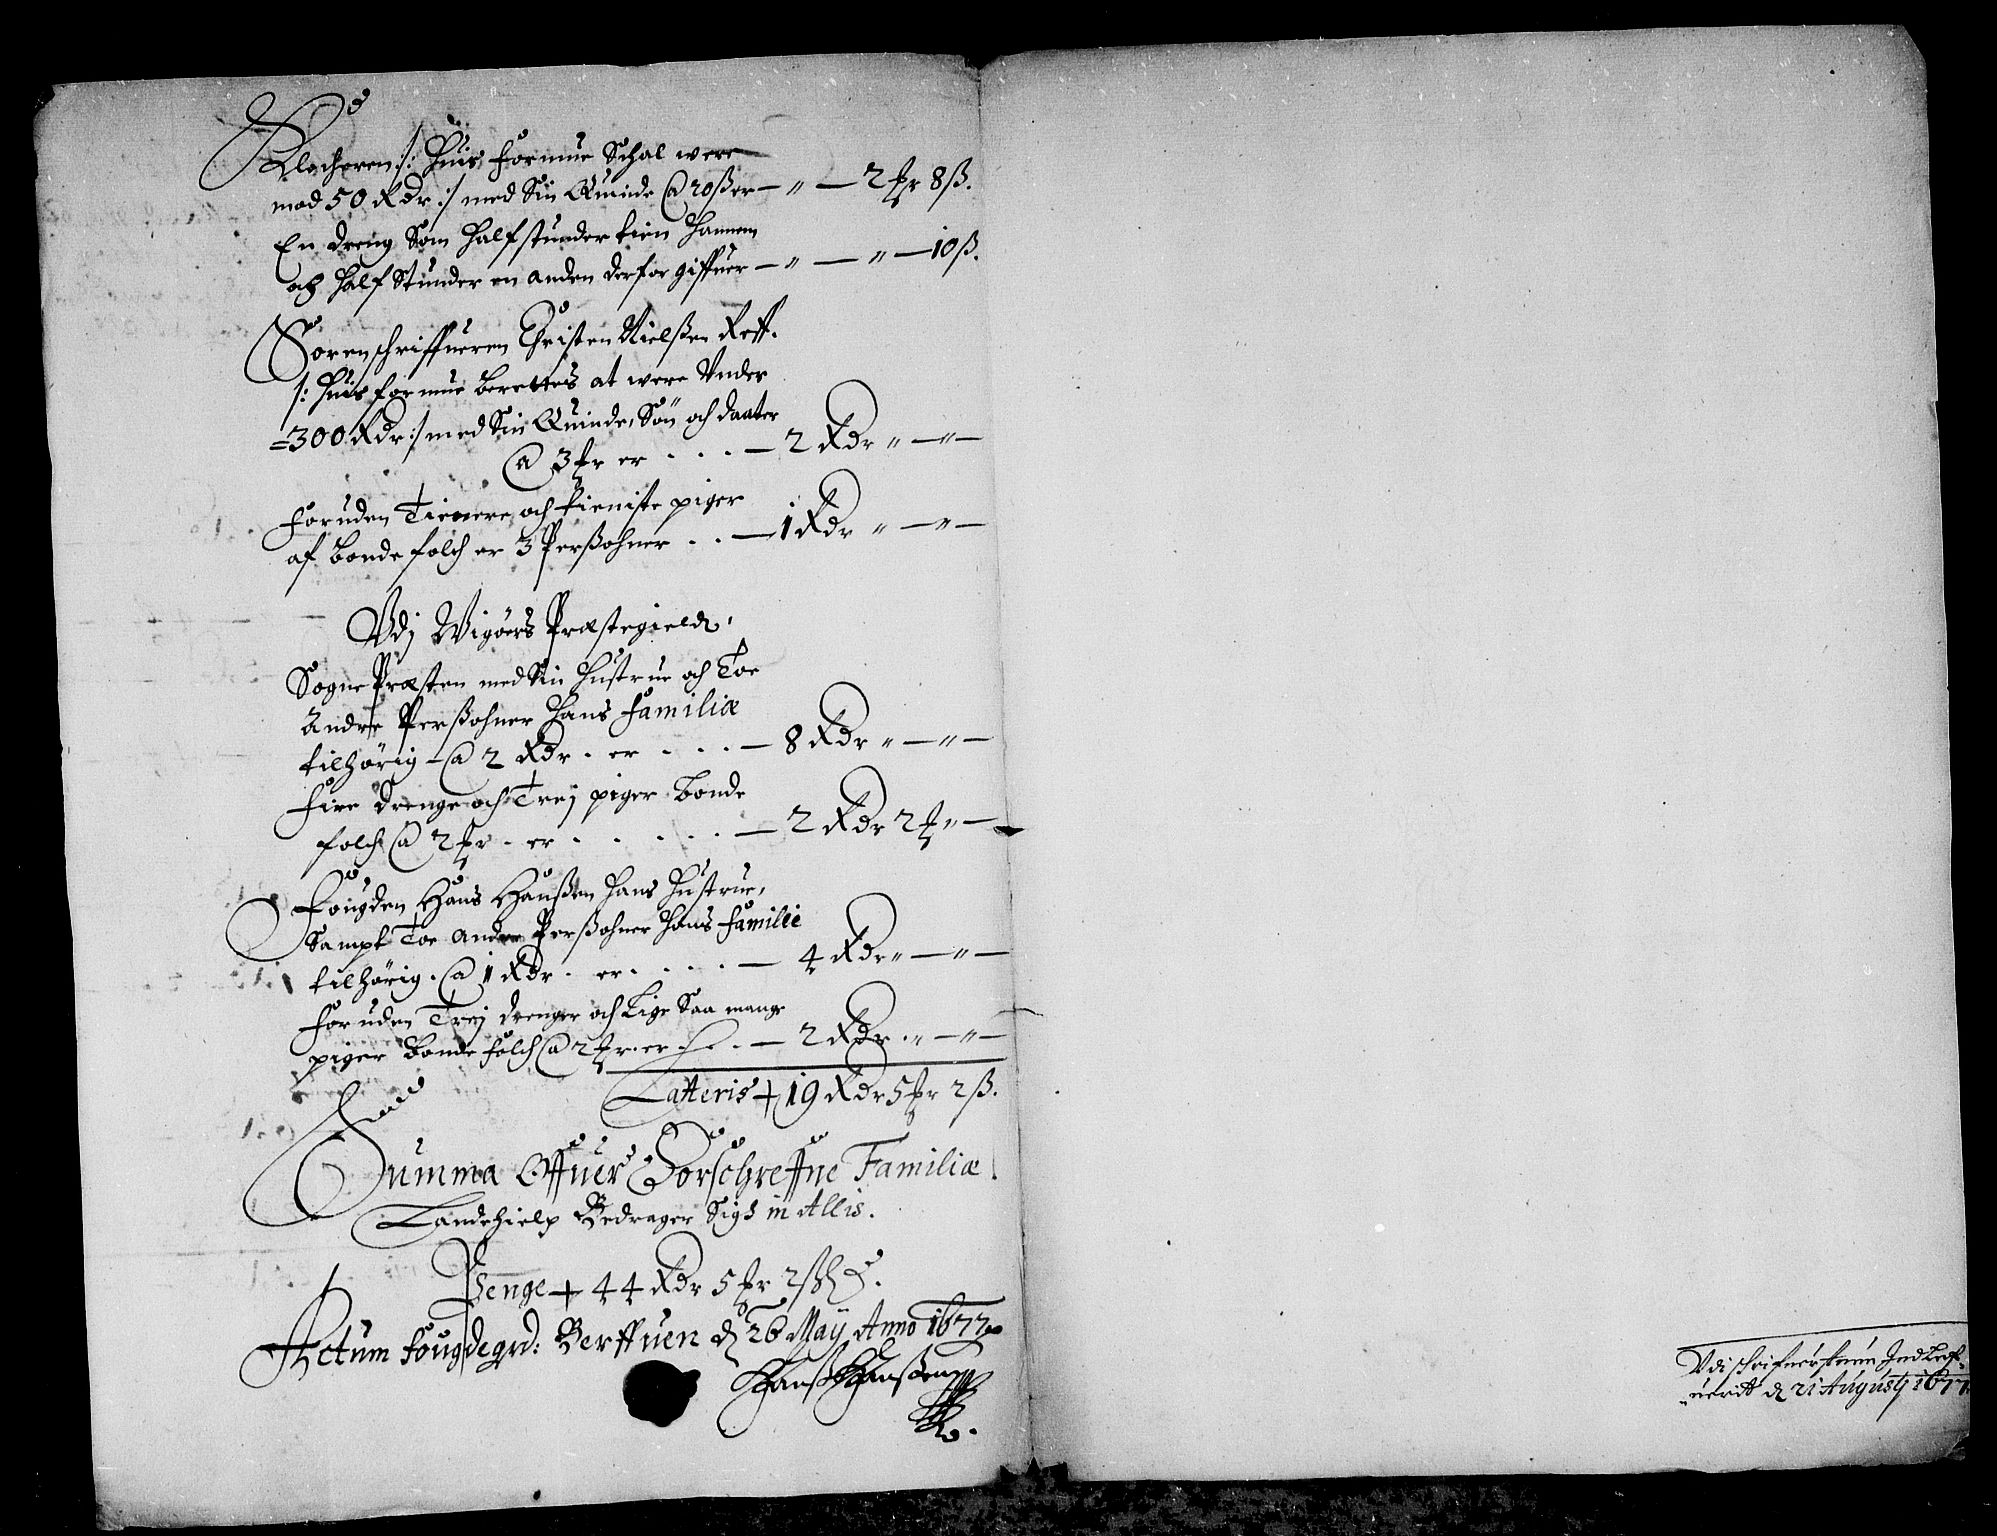 Klocheren /: huis formue schal were
mod 50 Rdr :/ med sin Quinde @ 20 ß er — " — 2 ƒr 8 ß.
En dreng som half stunder tien hannem
och half stunder en anden derfor giffuer — " — " — 10 ß.
Sorenschriffueren Christen Nielßen Reff.
/: huis formue berettes at were Vnder
300 Rdr :/ med sin Quinde, Søn och daater
@ 3 ƒr er . . . — 2 Rdr " — " —
foruden Tienere och tieniste piger
af bonde folch er 3 Perßohner . . — 1 Rdr " — " —
Vdj Wigöers Præstegield,
Sogne Præsten med sin hustrue och Toe
Andre Perßohner hans familiæ
tilhörig — @ 2 Rdr . er . . . — 8 Rdr " — " —
fire drenge och Trej piger bonde
folch @ 2 ƒr . er . . . . . — 2 Rdr 2 ƒr " —
Fougden Hans Hanßen hans hustrue,
sampt Toe andre Perßohner hans familie
tilhörig . @ 1 Rdr . er . . . . — 4 Rdr " — " —
foruden Trej drenger och Lige saa mange
piger bonde folch @ 2 ƒr . er . — 2 Rdr . " — " —
Latteris + 19 Rdr 5 ƒr 2 ß.
Summa Offuer Forschreffne Familiæ
Landehielp Bedrager sigh in Allis.
Penge + 44 Rdr 5 ƒr 2 ß
Actum fougdegrd: Berffuen d 26 Maÿ Anno 1677
Hanß Hanßen
Vdi schrifuerstuen Indlef-
uerit d 21 Augustj 1677